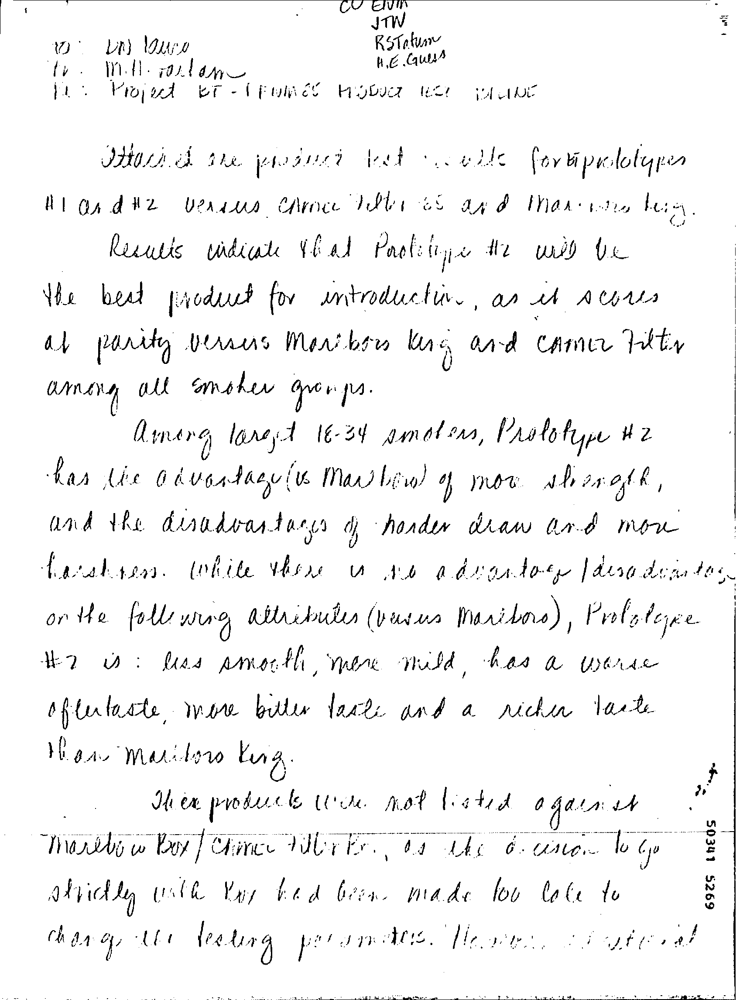 JTW
RSTatum
H.E. Guess
To:
Fr: M.H.
Re: Project BT-
Attached are product test results for BT prototypes
#1 and #2 versus Camel Filter 85 and Marlboro King.
Results indicate that Prototype #2 will be
the best product for introduction, as it scores
at parity versus Marlboro King and CAMEL Filter
among all smoker groups.
Among target 18-34 smokers, Prototype #2
has the advantage (vs Marlboro) of more strength,
and the disadvantages of harder draw and more
harshness. While there is no advantage/disadvantage
on the following attributes (versus Marlboro), Prototype
#2 is: less smooth, more mild, has a worse
aftertaste, more bitter taste and a richer taste
than Marlboro King.
These products were not tested against
Marlboro Box/Camel Filter Box, as the decision to go
strictly with Box had been made too late to
change the testing parameters.
50341 5269